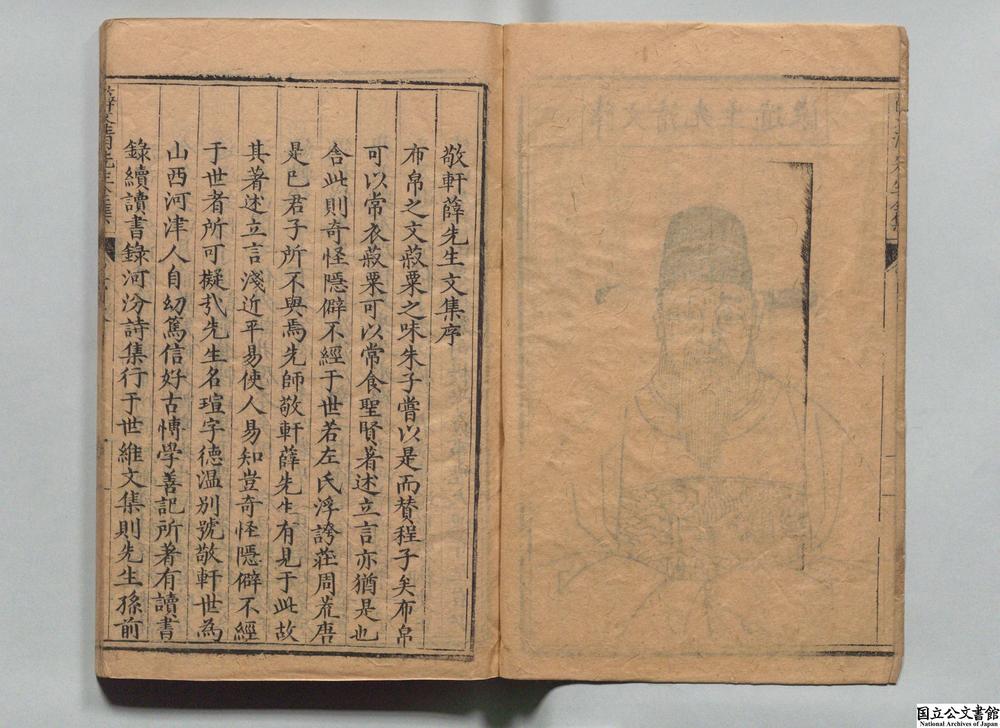 敬軒薛先生文集序
布帛之文菽粟之味朱子嘗以是而賛程子矣布帛
可以常衣菽粟可以常食聖賢著述立言亦猶是也
舎此則奇怪隱僻不經于世若左氏浮誇莊周荒唐
是已君子所不與焉先師敬軒薛先生有見于此故
其著述立言淺近平易使人易知豈奇怪隱僻不經
于世者所可擬㢤先生名瑄字德溫别號敬軒世為
山西河津人自幼篤信好古博學善記所著有讀書
錄續讀書錄河汾詩集行于世維文集則先生孫前
国立公文書館
National Archives of Japan